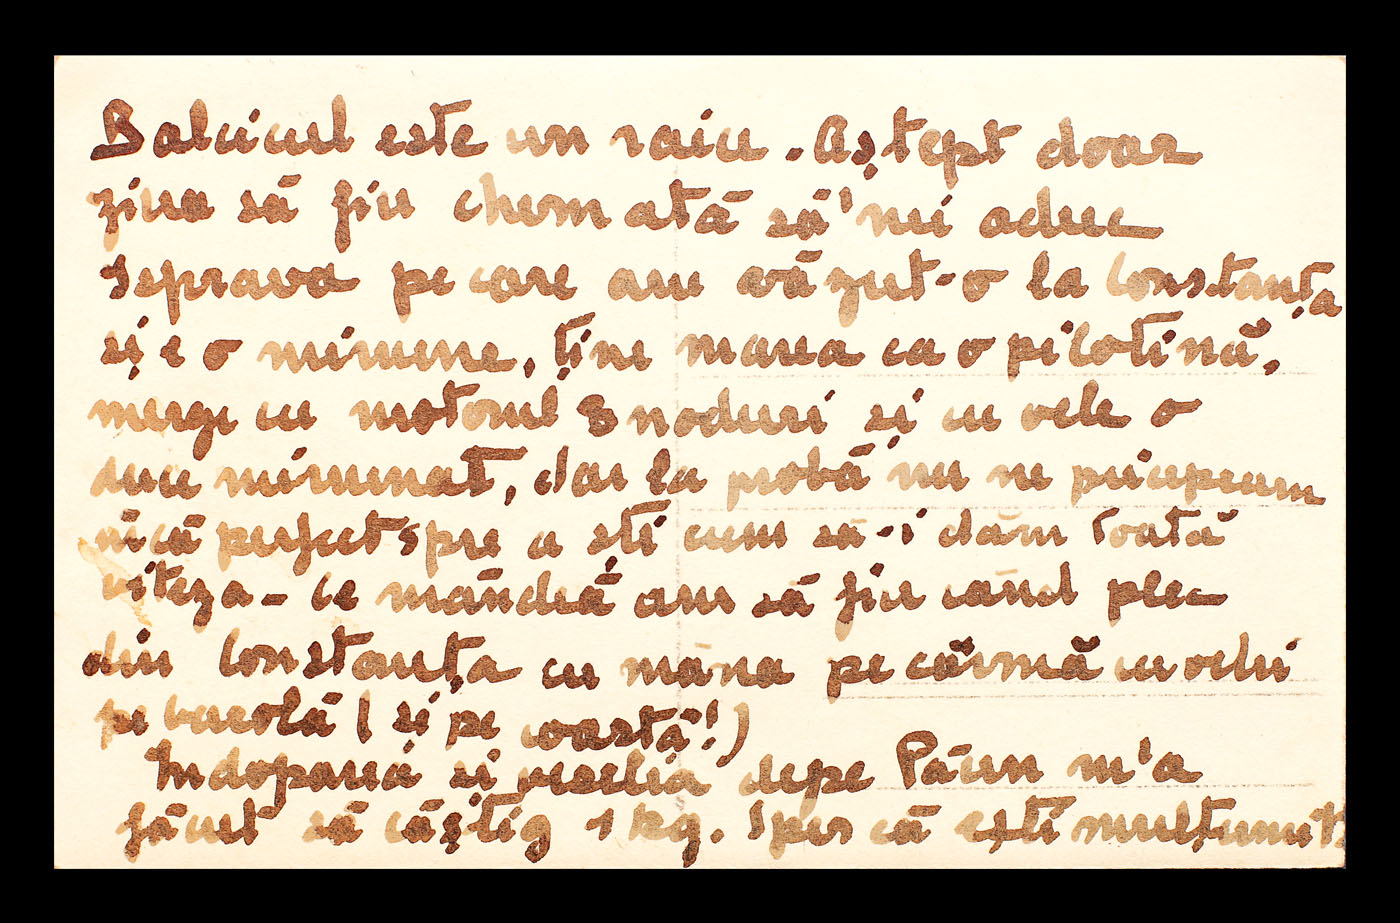 Balcicul este un raiu. Aștept doar
ziua să fiu chemată să'mi aduc
isprava pe care am văzut-o la Constanța
și e o minune, ține marea ca o pilotină,
merge cu motorul 8 noduri și cu vele o
duce minunat, dar la probă nu ne pricepeam
nică perfect spre a ști cum să-i dăm toată
viteza - Ce mândră am să fiu când plec
din Constanța cu mâna pe cârmă cu ochii
pe busolă (și pe coastă!)
Indopania si veselia dupe Păun m'a
făcut să câștig 1 kg. Sper că ești mulțumit